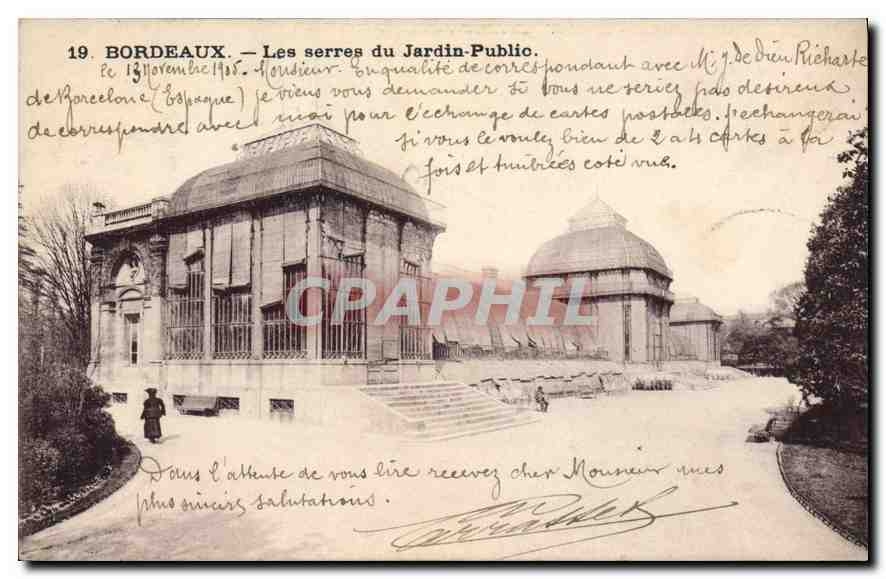 19. BORDEAUX. — Les serres du Jardin-Public.
le 13 Novembre 1905. Monsieur. En qualité de correspondant avec M. J. De Dieu Richarte
de Barcelone (Espagne) je viens vous demander si vous ne seriez pas désireux
de correspondre avec moi pour l'échange de cartes postales. j'echangerai
si vous le voulez bien de 2 a 4 cartes à la
fois et timbrées coté vue.
CPAPHIL
Dans l'attente de vous lire recevez cher Monsieur mes
plus sincères salutations.